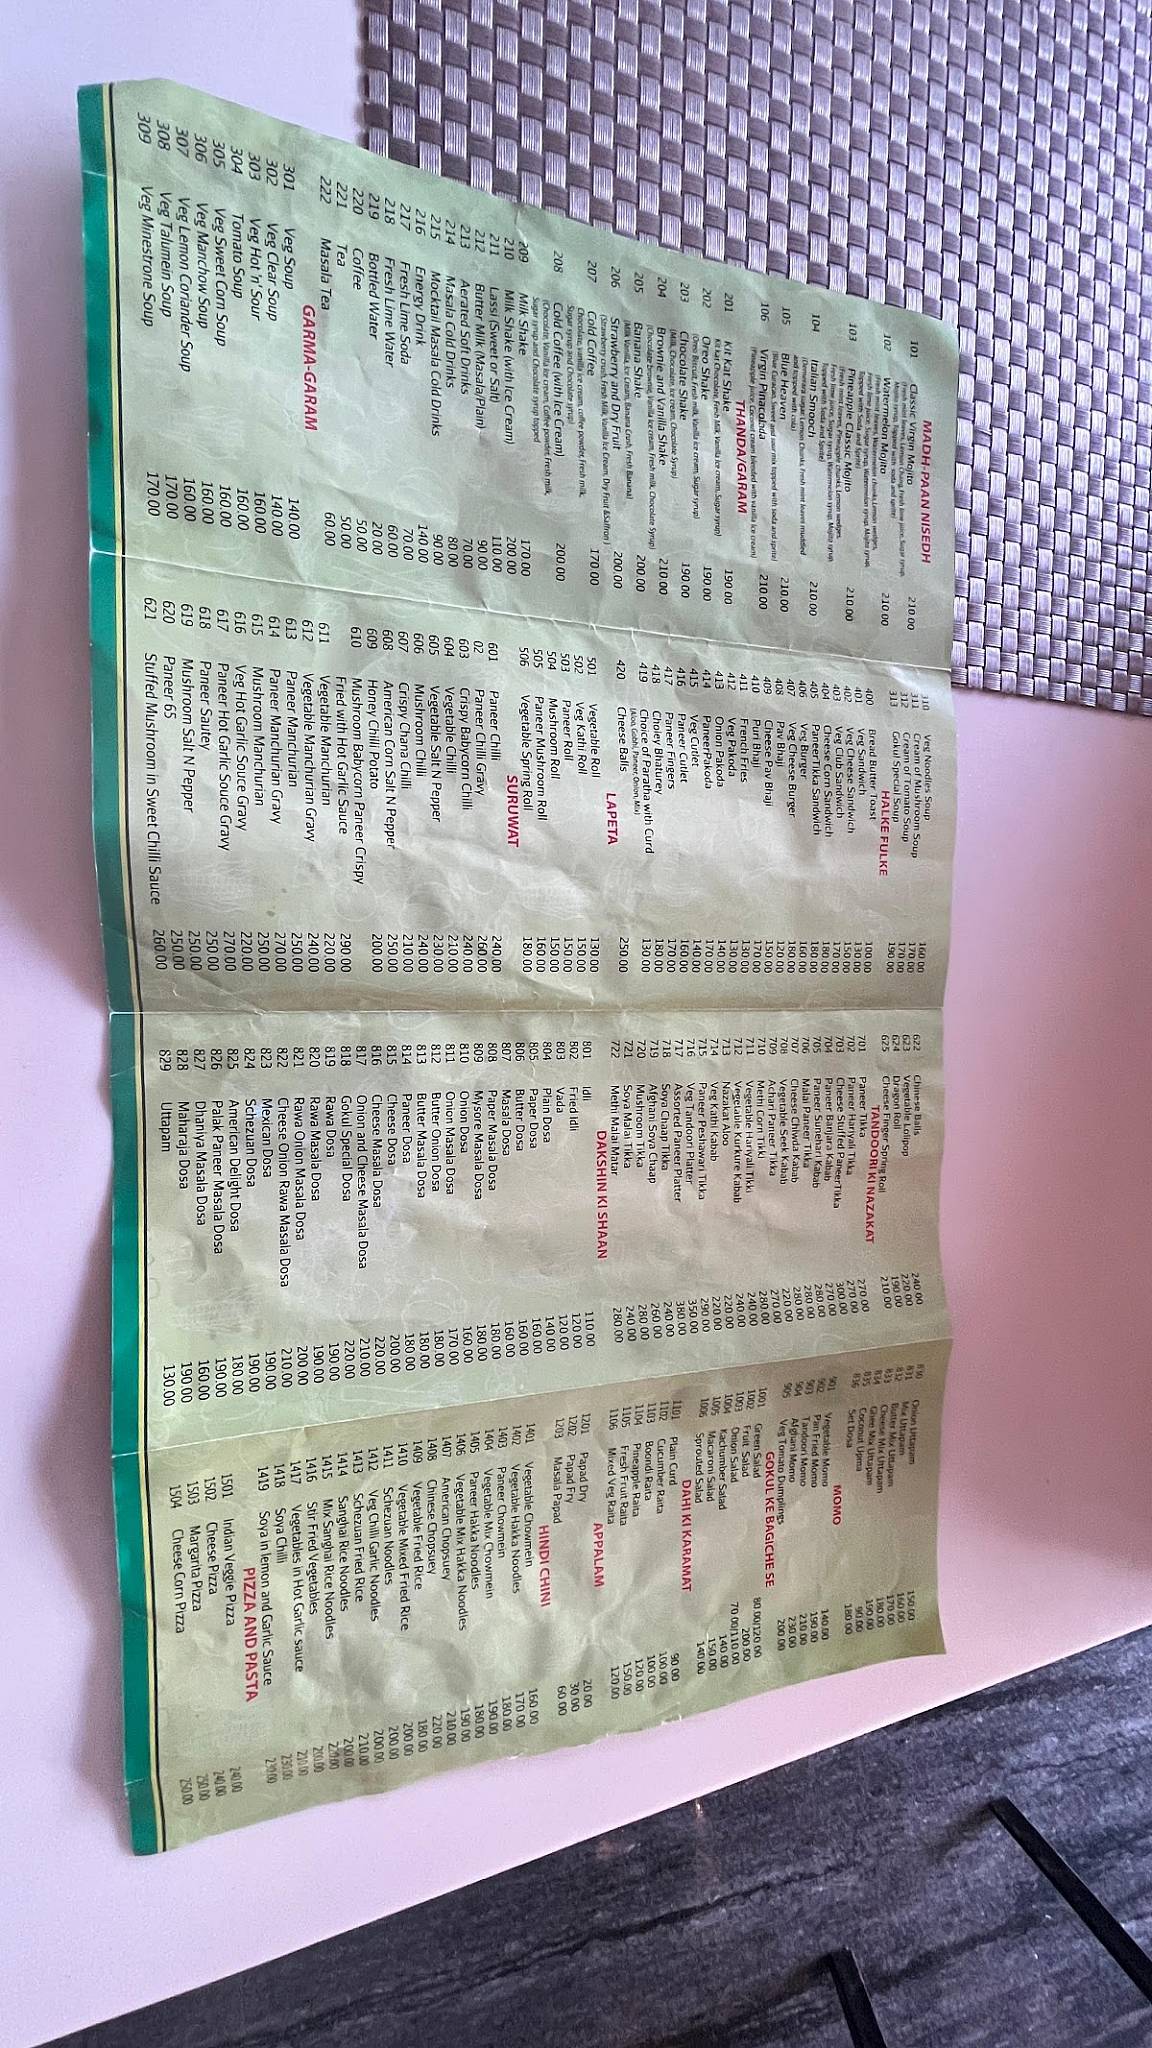 MADH-PAAN NISEDH
101 Classic Virgin Mojito 210.00
102 Watermelon Mojito 210.00
103 Pineapple Classic Mojito 210.00
104 Italian Smooch 210.00
105 Blue Heaven 210.00
106 Virgin Pinacolada 210.00
THANDA/GARAM
201 Kit Kat Shake 190.00
202 Oreo Shake 190.00
203 Chocolate Shake 190.00
204 Brownie and Vanilla Shake 210.00
205 Banana Shake 200.00
206 Strawberry and Dry Fruit 200.00
207 Cold Coffee 170.00
208 Cold Coffee (with Ice Cream) 200.00
209 Milk Shake 170.00
210 Milk Shake (with Ice Cream) 200.00
211 Lassi (Sweet or Salt) 110.00
212 Butter Milk (Masala/Plain) 90.00
213 Aerated Soft Drinks 70.00
214 Masala Cold Drinks 80.00
215 Mocktail Masala Cold Drinks 90.00
216 Energy Drink 140.00
217 Fresh Lime Soda 70.00
218 Fresh Lime Water 60.00
219 Bottled Water 20.00
220 Coffee 50.00
221 Tea 50.00
222 Masala Tea 60.00
GARMA-GARAM
301 Veg Soup 140.00
302 Veg Clear Soup 140.00
303 Veg Hot 'n' Sour 160.00
304 Tomato Soup 160.00
305 Veg Sweet Corn Soup 160.00
306 Veg Manchow Soup 160.00
307 Veg Lemon Coriander Soup 160.00
308 Veg Talumein Soup 170.00
309 Veg Minestrone Soup 170.00
310 Veg Noodles Soup 160.00
311 Cream of Mushroom Soup 170.00
312 Cream of Tomato Soup 170.00
313 Gokul Special Soup 190.00
HALKE FULKE
400 Bread Butter Toast 100.00
401 Veg Sandwich 130.00
402 Veg Cheese Sandwich 150.00
403 Veg Club Sandwich 170.00
404 Cheese Corn Sandwich 180.00
405 PaneerTikka Sandwich 180.00
406 Veg Burger 160.00
407 Veg Cheese Burger 180.00
408 Pav Bhaji 120.00
409 Cheese Pav Bhaji 150.00
410 Poori Bhaji 170.00
411 French Fries 130.00
412 Veg Pakoda 130.00
413 Onion Pakoda 140.00
414 PaneerPakoda 170.00
415 Veg Cutlet 140.00
416 Paneer Cutlet 160.00
417 Paneer Fingers 170.00
418 Choley Bhaturey 180.00
419 Choice of Paratha with Curd 130.00
(Aloo, Gobhi, Paneer, Onion, Mix)
420 Cheese Balls 250.00
LAPETA
501 Vegetable Roll 130.00
502 Veg Kathi Roll 150.00
503 Paneer Roll 150.00
504 Mushroom Roll 150.00
505 Paneer Mushroom Roll 160.00
506 Vegetable Spring Roll 180.00
SURUWAT
601 Paneer Chilli 240.00
02 Paneer Chilli Gravy 260.00
603 Crispy Babycorn Chilli 240.00
604 Vegetable Chilli 210.00
605 Vegetable Salt N Pepper 230.00
606 Mushroom Chilli 240.00
607 Crispy Chana Chilli 210.00
608 American Corn Salt N Pepper 250.00
609 Honey Chilli Potato 200.00
610 Mushroom Babycorn Paneer Crispy
Fried with Hot Garlic Sauce 290.00
611 Vegetable Manchurian 220.00
612 Vegetable Manchurian Gravy 240.00
613 Paneer Manchurian 250.00
614 Paneer Manchurian Gravy 270.00
615 Mushroom Manchurian 250.00
616 Veg Hot Garlic Souce Gravy 220.00
617 Paneer Hot Garlic Souce Gravy 270.00
618 Paneer Sautey 250.00
619 Mushroom Salt N Pepper 250.00
620 Paneer 65 250.00
621 Stuffed Mushroom in Sweet Chilli Sauce 260.00
622 Chinese Balls 240.00
623 Vegetable Lollipop 220.00
624 Dragon Roll 190.00
625 Cheese Finger Spring Roll 210.00
TANDOORI KI NAZAKAT
701 Paneer Tikka 270.00
702 Paneer Hariyali Tikka 270.00
703 Cheese Stuffed PaneerTikka 300.00
704 Paneer Banjara Kabab 270.00
705 Paneer Sunehari Kabab 280.00
706 Malai Paneer Tikka 280.00
707 Cheese Chilwa Kabab 280.00
708 Vegetable Seek Kabab 220.00
709 Achari Paneer Tikka 270.00
710 Methi Corn Tikki 280.00
711 Vegetable Hariyali Tikki 240.00
712 Vegetable Kurkure Kabab 240.00
713 Nazakat Aloo 220.00
714 Veg Kathi Kabab 220.00
715 Paneer Peshawari Tikka 290.00
716 Veg Tandoori Platter 350.00
717 Assorted Paneer Platter 380.00
718 Soya Chaap Tikka 240.00
719 Afghani Soya Chaap 260.00
720 Mushroom Tikka 280.00
721 Soya Malai Tikka 240.00
722 Methi Malai Matar 280.00
DAKSHIN KI SHAAN
801 Idli 110.00
802 Fried Idli 120.00
803 Vada 120.00
804 Plain Dosa 140.00
805 Paper Dosa 160.00
806 Butter Dosa 160.00
807 Masala Dosa 160.00
808 Paper Masala Dosa 180.00
809 Mysore Masala Dosa 180.00
810 Onion Dosa 160.00
811 Onion Masala Dosa 170.00
812 Butter Onion Dosa 180.00
813 Butter Masala Dosa 180.00
814 Paneer Dosa 180.00
815 Cheese Dosa 200.00
816 Cheese Masala Dosa 220.00
817 Onion and Cheese Masala Dosa 210.00
818 Gokul Special Dosa 220.00
819 Rawa Dosa 190.00
820 Rawa Masala Dosa 190.00
821 Rawa Onion Masala Dosa 200.00
822 Cheese Onion Rawa Masala Dosa 210.00
823 Mexican Dosa 190.00
824 Schezuan Dosa 190.00
825 American Delight Dosa 180.00
826 Palak Paneer Masala Dosa 190.00
827 Dhaniya Masala Dosa 160.00
828 Maharaja Dosa 190.00
829 Uttapam 130.00
830 Onion Uttapam 150.00
831 Mix Uttapam 160.00
832 Butter Mix Uttapam 170.00
833 Cheese Mix Uttapam 180.00
834 Ghee Mix Uttapam 190.00
835 Coconut Upma 90.00
836 Set Dosa 180.00
MOMO
901 Vegetable Momo 140.00
902 Pan Fried Momo 190.00
903 Tandoori Momo 210.00
904 Afghani Momo 230.00
905 Veg Tomato Dumplings 200.00
GOKUL KE BAGICHE SE
1001 Green Salad 80.00/120.00
1002 Fruit Salad 200.00
1003 Onion Salad 70.00/110.00
1004 Kachumber Salad 140.00
1005 Macaroni Salad 150.00
1006 Sprouted Salad 140.00
DAHI KI KARAMAT
1101 Plain Curd 90.00
1102 Cucumber Raita 100.00
1103 Boondi Raita 100.00
1104 Pineapple Raita 120.00
1105 Fresh Fruit Raita 150.00
1106 Mixed Veg Raita 120.00
APPALAM
1201 Papad Dry 20.00
1202 Papad Fry 30.00
1203 Masala Papad 60.00
HINDI CHINI
1401 Vegetable Chowmein 160.00
1402 Vegetable Hakka Noodles 170.00
1403 Paneer Chowmein 180.00
1404 Vegetable Mix Chowmein 190.00
1405 Paneer Hakka Noodles 180.00
1406 Vegetable Mix Hakka Noodles 190.00
1407 American Chopsuey 210.00
1408 Chinese Chopsuey 220.00
1409 Vegetable Fried Rice 180.00
1410 Vegetable Mixed Fried Rice 200.00
1411 Schezuan Noodles 200.00
1412 Veg Chilli Garlic Noodles 200.00
1413 Schezuan Fried Rice 210.00
1414 Sanghai Rice Noodles 200.00
1415 Mix Sanghai Rice Noodles 220.00
1416 Stir Fried Vegetables 200.00
1417 Vegetables in Hot Garlic sauce 210.00
1418 Soya Chilli 230.00
1419 Soya in lemon and Garlic Sauce 230.00
PIZZA AND PASTA
1501 Indian Veggie Pizza 240.00
1502 Cheese Pizza 240.00
1503 Margarita Pizza 250.00
1504 Cheese Corn Pizza 250.00